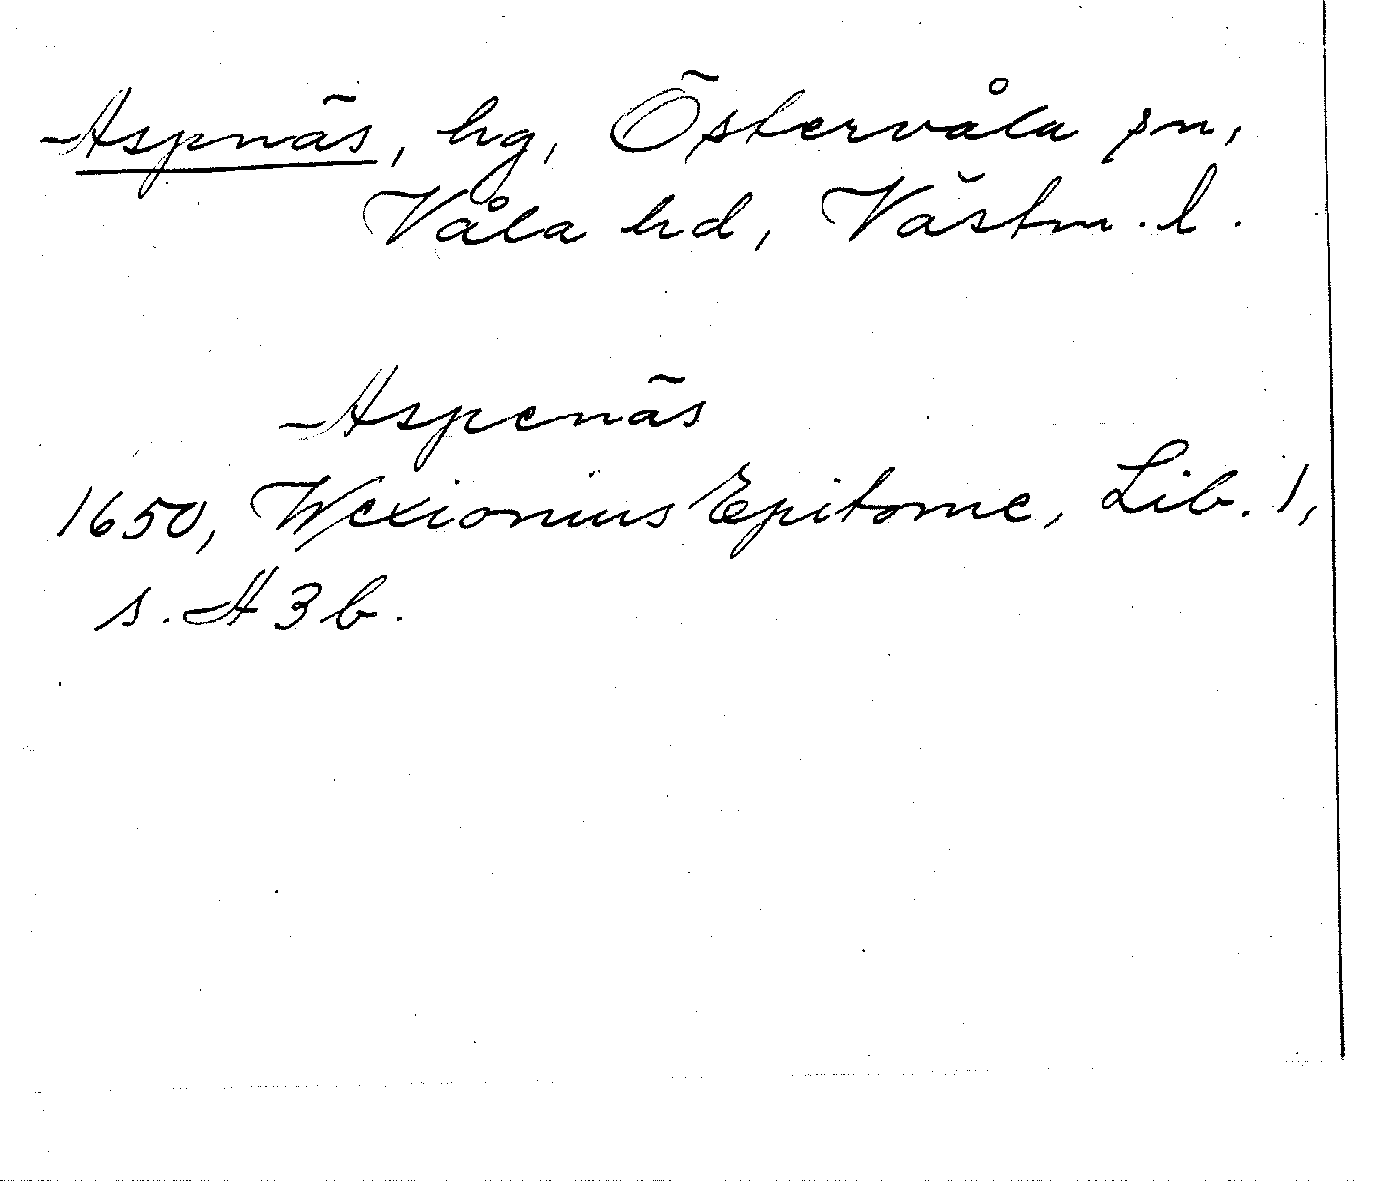 Aspnäs, hg, Östervåla sn,
Våla hd, Västm. l.
Aspenäs
1650, Wexionius Epitome, Lib. 1,
s. A 3 b.